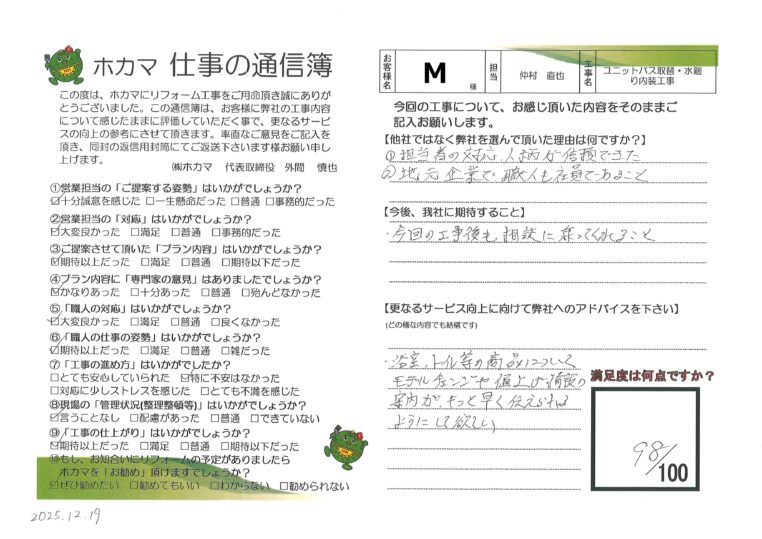 ホカマ 仕事の通信簿
この度は、ホカマにリフォーム工事をご用命頂き誠にありが
とうございました。この通信簿は、お客様に弊社の工事内容
について感じたままに評価していただく事で、更なるサービ
スの向上の参考にさせて頂きます。率直なご意見をご記入を
頂き、同封の返信用封筒にてご返送下さいます様お願い申し
上げます。
㈱ホカマ 代表取締役 外間 慎也
①営業担当の「ご提案する姿勢」はいかがでしょうか？
☑十分誠意を感じた □一生懸命だった □普通 □事務的だった
②営業担当の「対応」はいかがでしょうか？
☑大変良かった □満足 □普通 □事務的だった
③ご提案させて頂いた「プラン内容」はいかがでしょうか？
☑期待以上だった □満足 □普通 □期待以下だった
④プラン内容に「専門家の意見」はありましたでしょうか？
☑かなりあった □十分あった □普通 □殆んどなかった
⑤「職人の対応」はいかがでしょうか？
☑大変良かった □満足 □普通 □良くなかった
⑥「職人の仕事の姿勢」はいかがでしょうか？
☑期待以上だった □満足 □普通 □雑だった
⑦「工事の進め方」はいかがでしたか？
□とても安心していられた ☑特に不安はなかった
□対応に少しストレスを感じた □とても不満を感じた
⑧現場の「管理状況(整理整頓等)」はいかがでしょうか？
☑言うことなし □配慮があった □普通 □できていない
⑨「工事の仕上がり」はいかがでしょうか？
☑期待以上だった □満足 □普通 □期待以下だった
⑩もし、お知合いにリフォームの予定がありましたら
ホカマを「お勧め」頂けますでしょうか？
☑ぜひ勧めたい □勧めてもいい □わからない □勧められない
2025.12.19
お客様名 M 様 担当 仲村 直也 工事名 ユニットバス取替・水廻
り内装工事
今回の工事について、お感じ頂いた内容をそのままご
記入お願します。
【他社ではなく弊社を選んで頂いた理由は何ですか？】
①担当者の対応、人柄が信頼できた
②地元企業で職人も社員であること
【今後、我社に期待すること】
・今回の工事後も、相談に乗ってくれること
【更なるサービス向上に向けて弊社へのアドバイスを下さい】
(どの様な内容でも結構です)
・浴室、トイレ等の商品について
モデルチェンジや値上げ情報の
案内が、もっと早く伝えられる
ようにして欲しい
満足度は何点ですか？
98/100